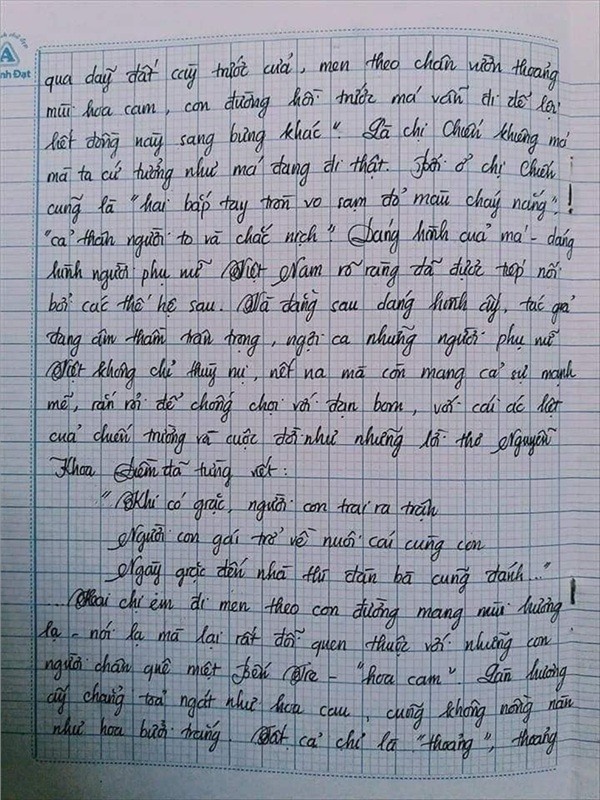 nh Đạt
qua dãy đất cày trước cửa, men theo chân vườn thoảng
mùi hoa cam, con đường hồi trước má vẫn đi để lội
hết đồng này sang bưng khác". Là chị Chiến khiêng má
mà ta cứ tưởng như má đang đi thật. Bởi ở chị Chiến
cũng là "hai bắp tay tròn vo sạm đỏ màu cháy nắng",
"cả thân người to và chắc nịch". Dáng hình của má - dáng
hình người phụ nữ Việt Nam rõ ràng đã được tiếp nối
bởi các thế hệ sau. Và đằng sau dáng hình ấy, tác giả
đang âm thầm trân trọng, ngợi ca những người phụ nữ
Việt không chỉ thùy mị, nết na mà còn mang cả sự mạnh
mẽ, rắn rỏi để chống chọi với đạn bom, với cái ác liệt
của chiến trường và cuộc đời như những lời thơ Nguyễn
Khoa Điềm đã từng viết:
"Khi có giặc, người con trai ra trận
Người con gái trở về nuôi cái cùng con
Ngày giặc đến nhà thì đàn bà cũng đánh..."
...Hai chị em đi men theo con đường mang mùi hương
lạ - nói lạ mà lại rất đỗi quen thuộc với những con
người chân quê miệt Bến Tre - "hoa cam". Làn hương
ấy chẳng toả ngát như hoa cau, cũng không nồng nàn
như hoa bưởi trắng. Tất cả chỉ là "thoảng", thoảng